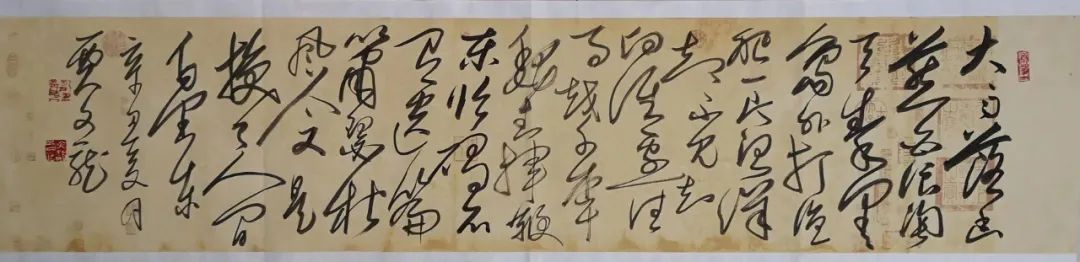 大雨落幽
燕白浪滔
天秦皇
岛外打渔
船一片汪洋
都不见知
向谁边往
事越千年
魏武挥鞭
东临碣石
有遗篇
萧瑟秋
风今又是
换了人间
辛丑夏月
贾文龙